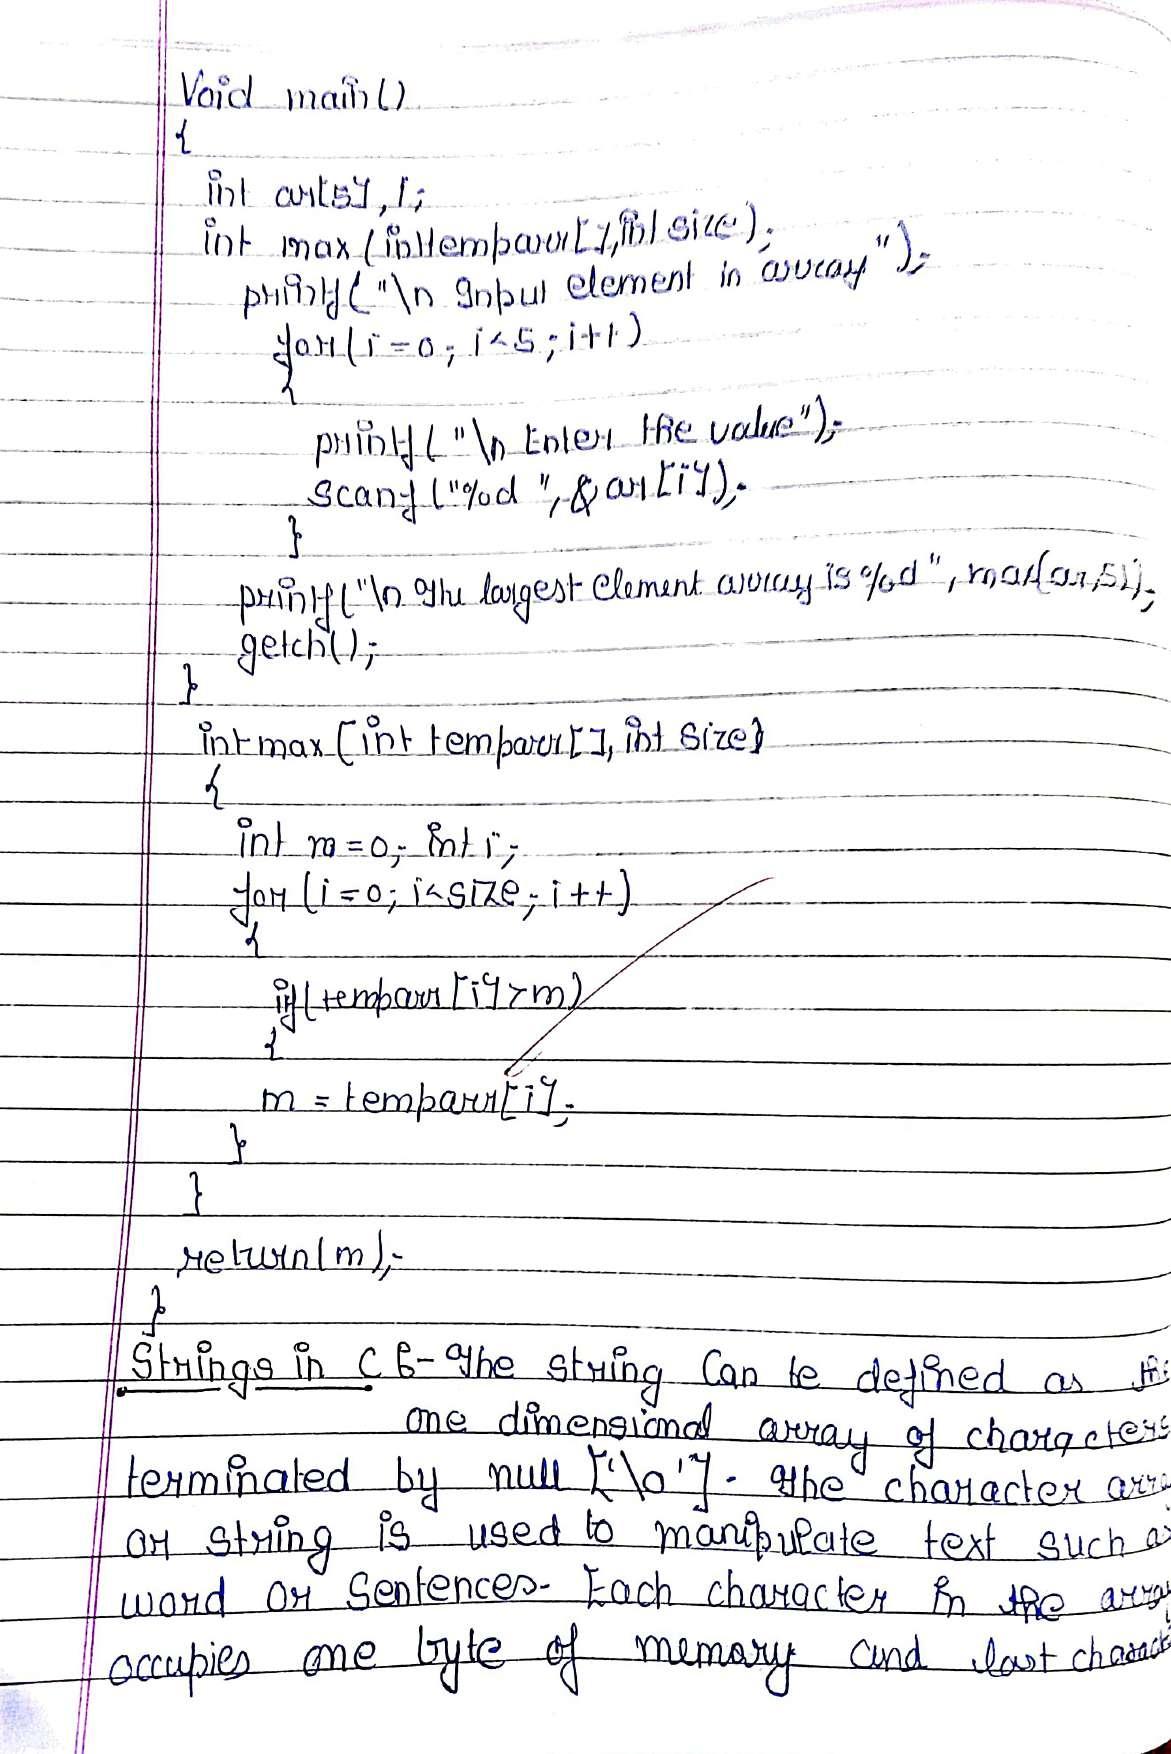 Void main()
{
int ar[5], i;
int max (int temparr[], int size);
printf("\n Input element in array");
for(i=0; i<5; i++)
{
printf("\n Enter the value");
scanf("%d", &ar[i]);
}
printf("\n The largest element array is %d", max(ar,5));
getch();
}
int max (int temparr[], int size)
{
int m=0; int i;
for (i=0; i<size; i++)
{
if(temparr[i]>m)
{
m = temparr[i];
}
}
return(m);
}
Strings in C :- The string Can be defined as the
one dimensional array of characters
terminated by null ['\0']. The character arra
or string is used to manipulate text such as
word or Sentences. Each character in the array
occupies one byte of memory and last charact